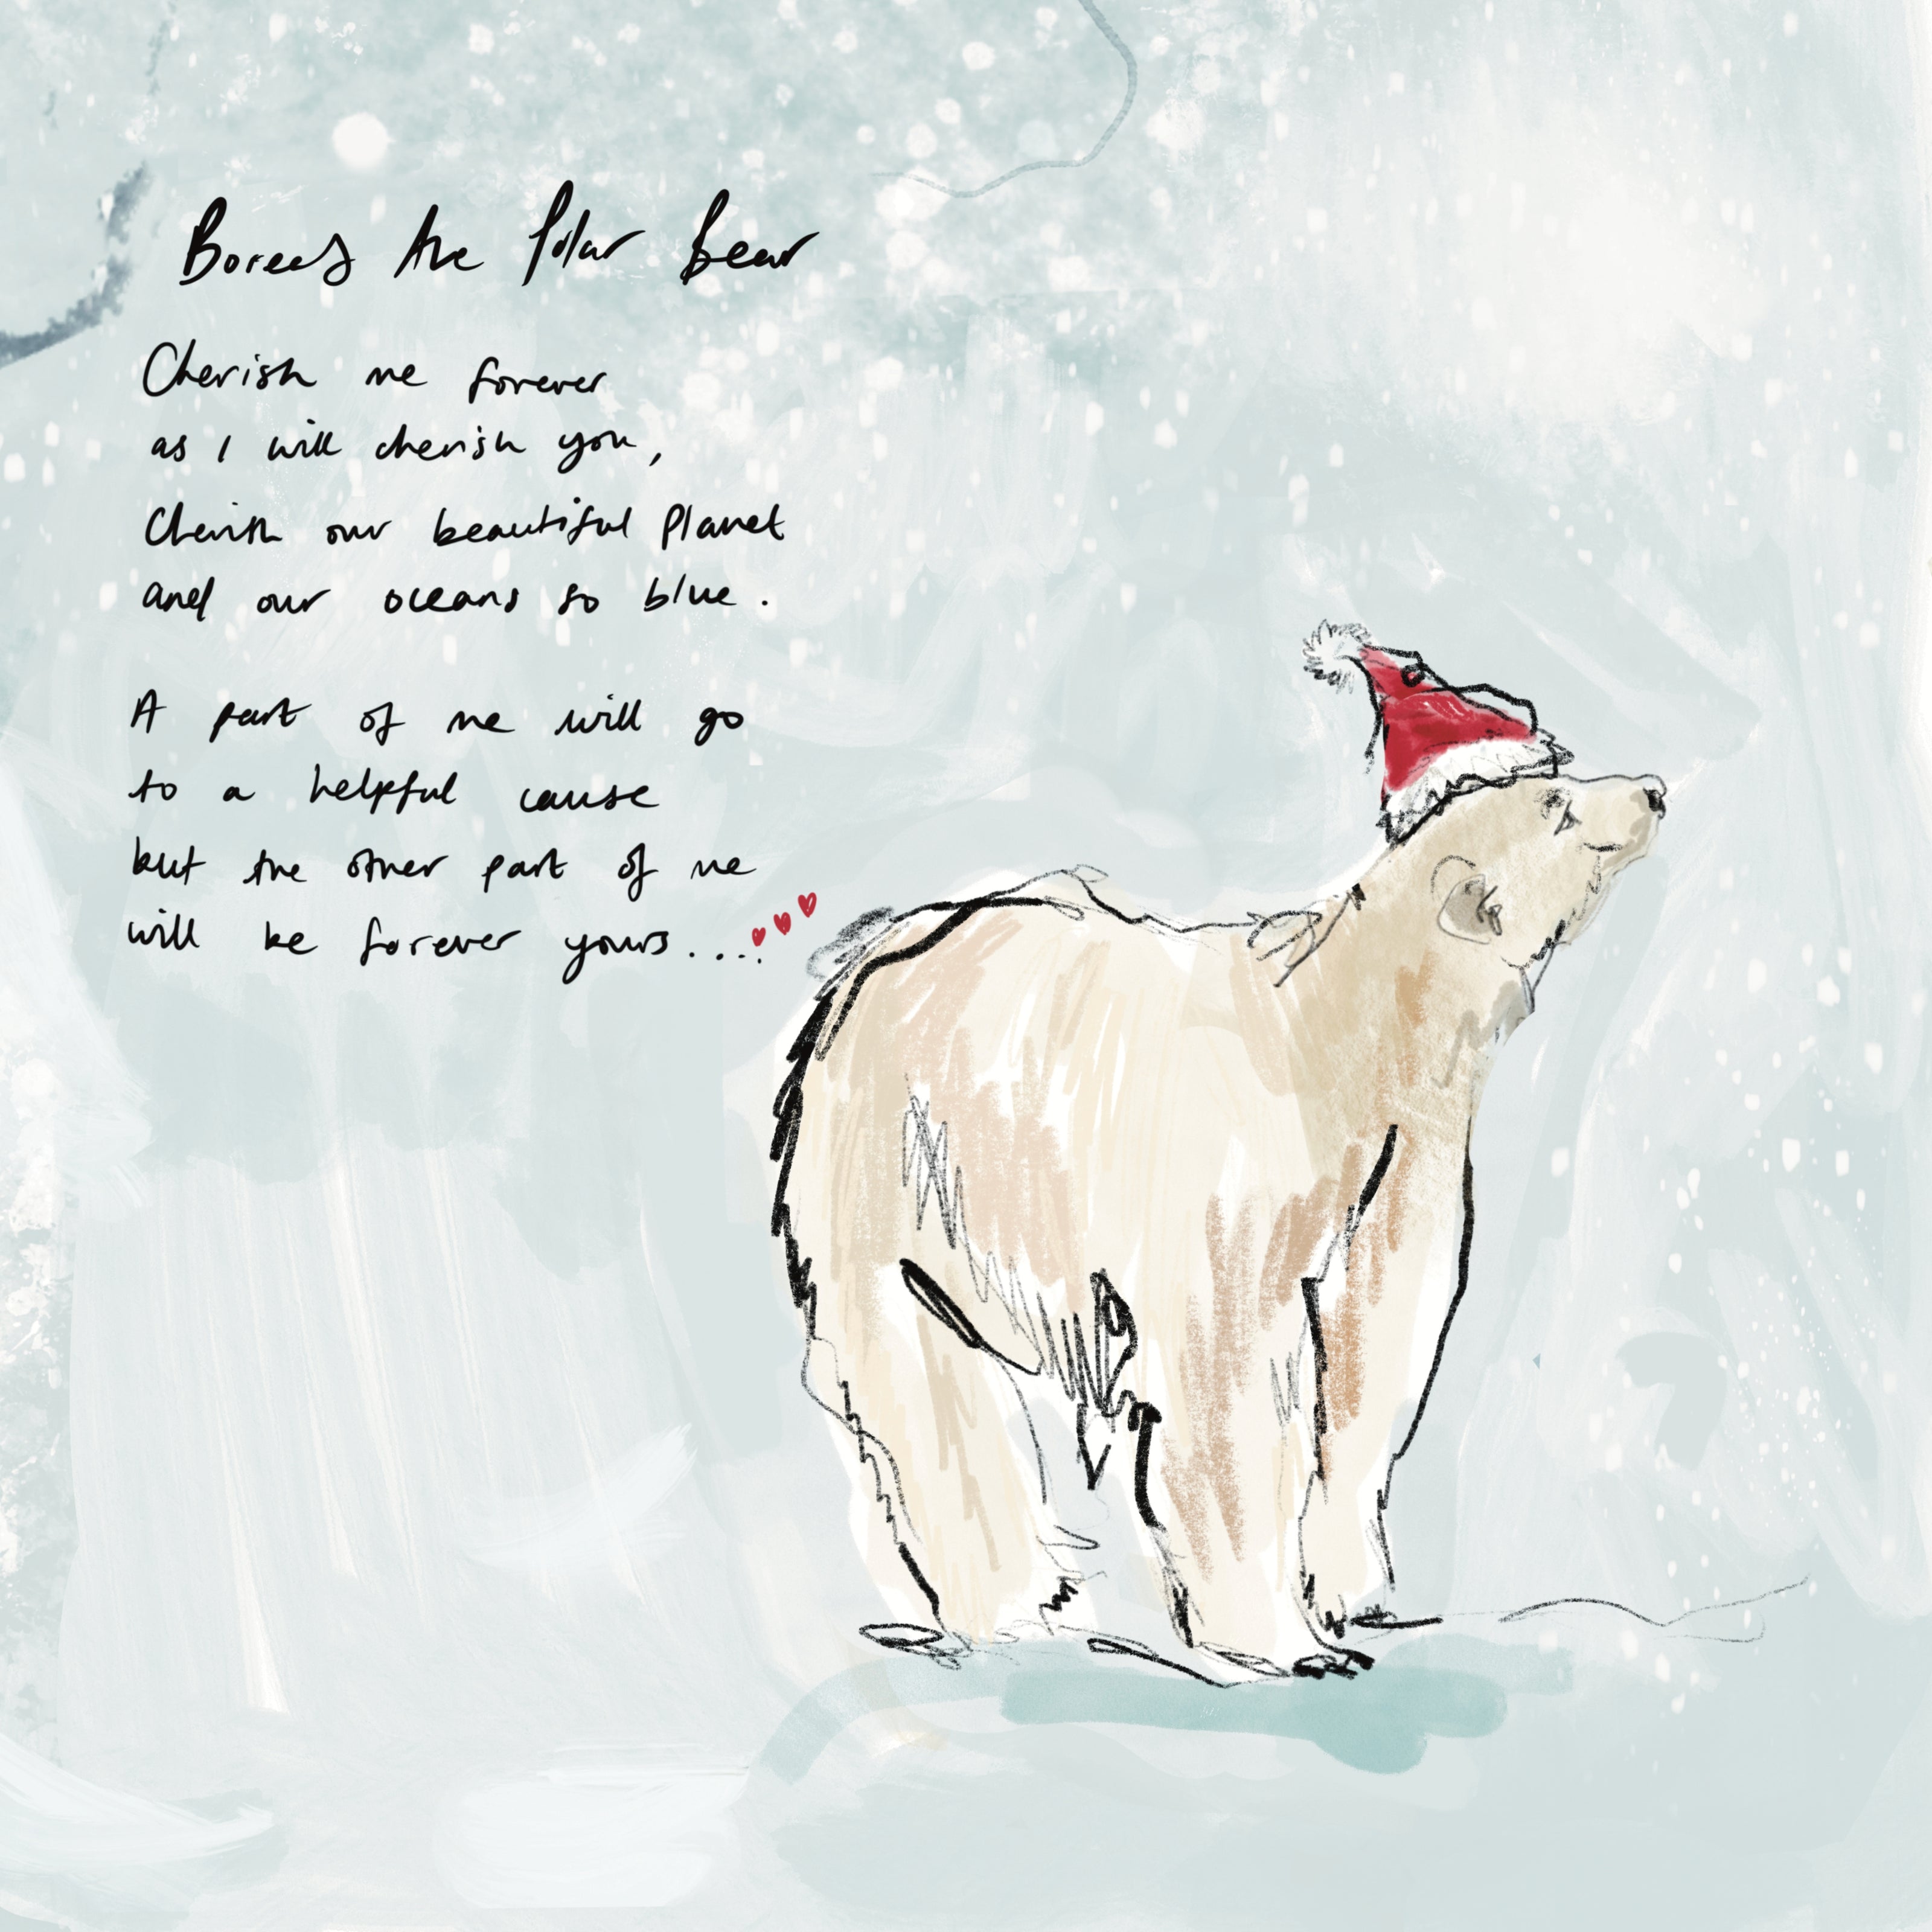 Boreas the Polar Bear
Cherish me forever
as I will cherish you,
Cherish our beautiful planet
and our oceans so blue.
A part of me will go
to a helpful cause
but the other part of me
will be forever yours....